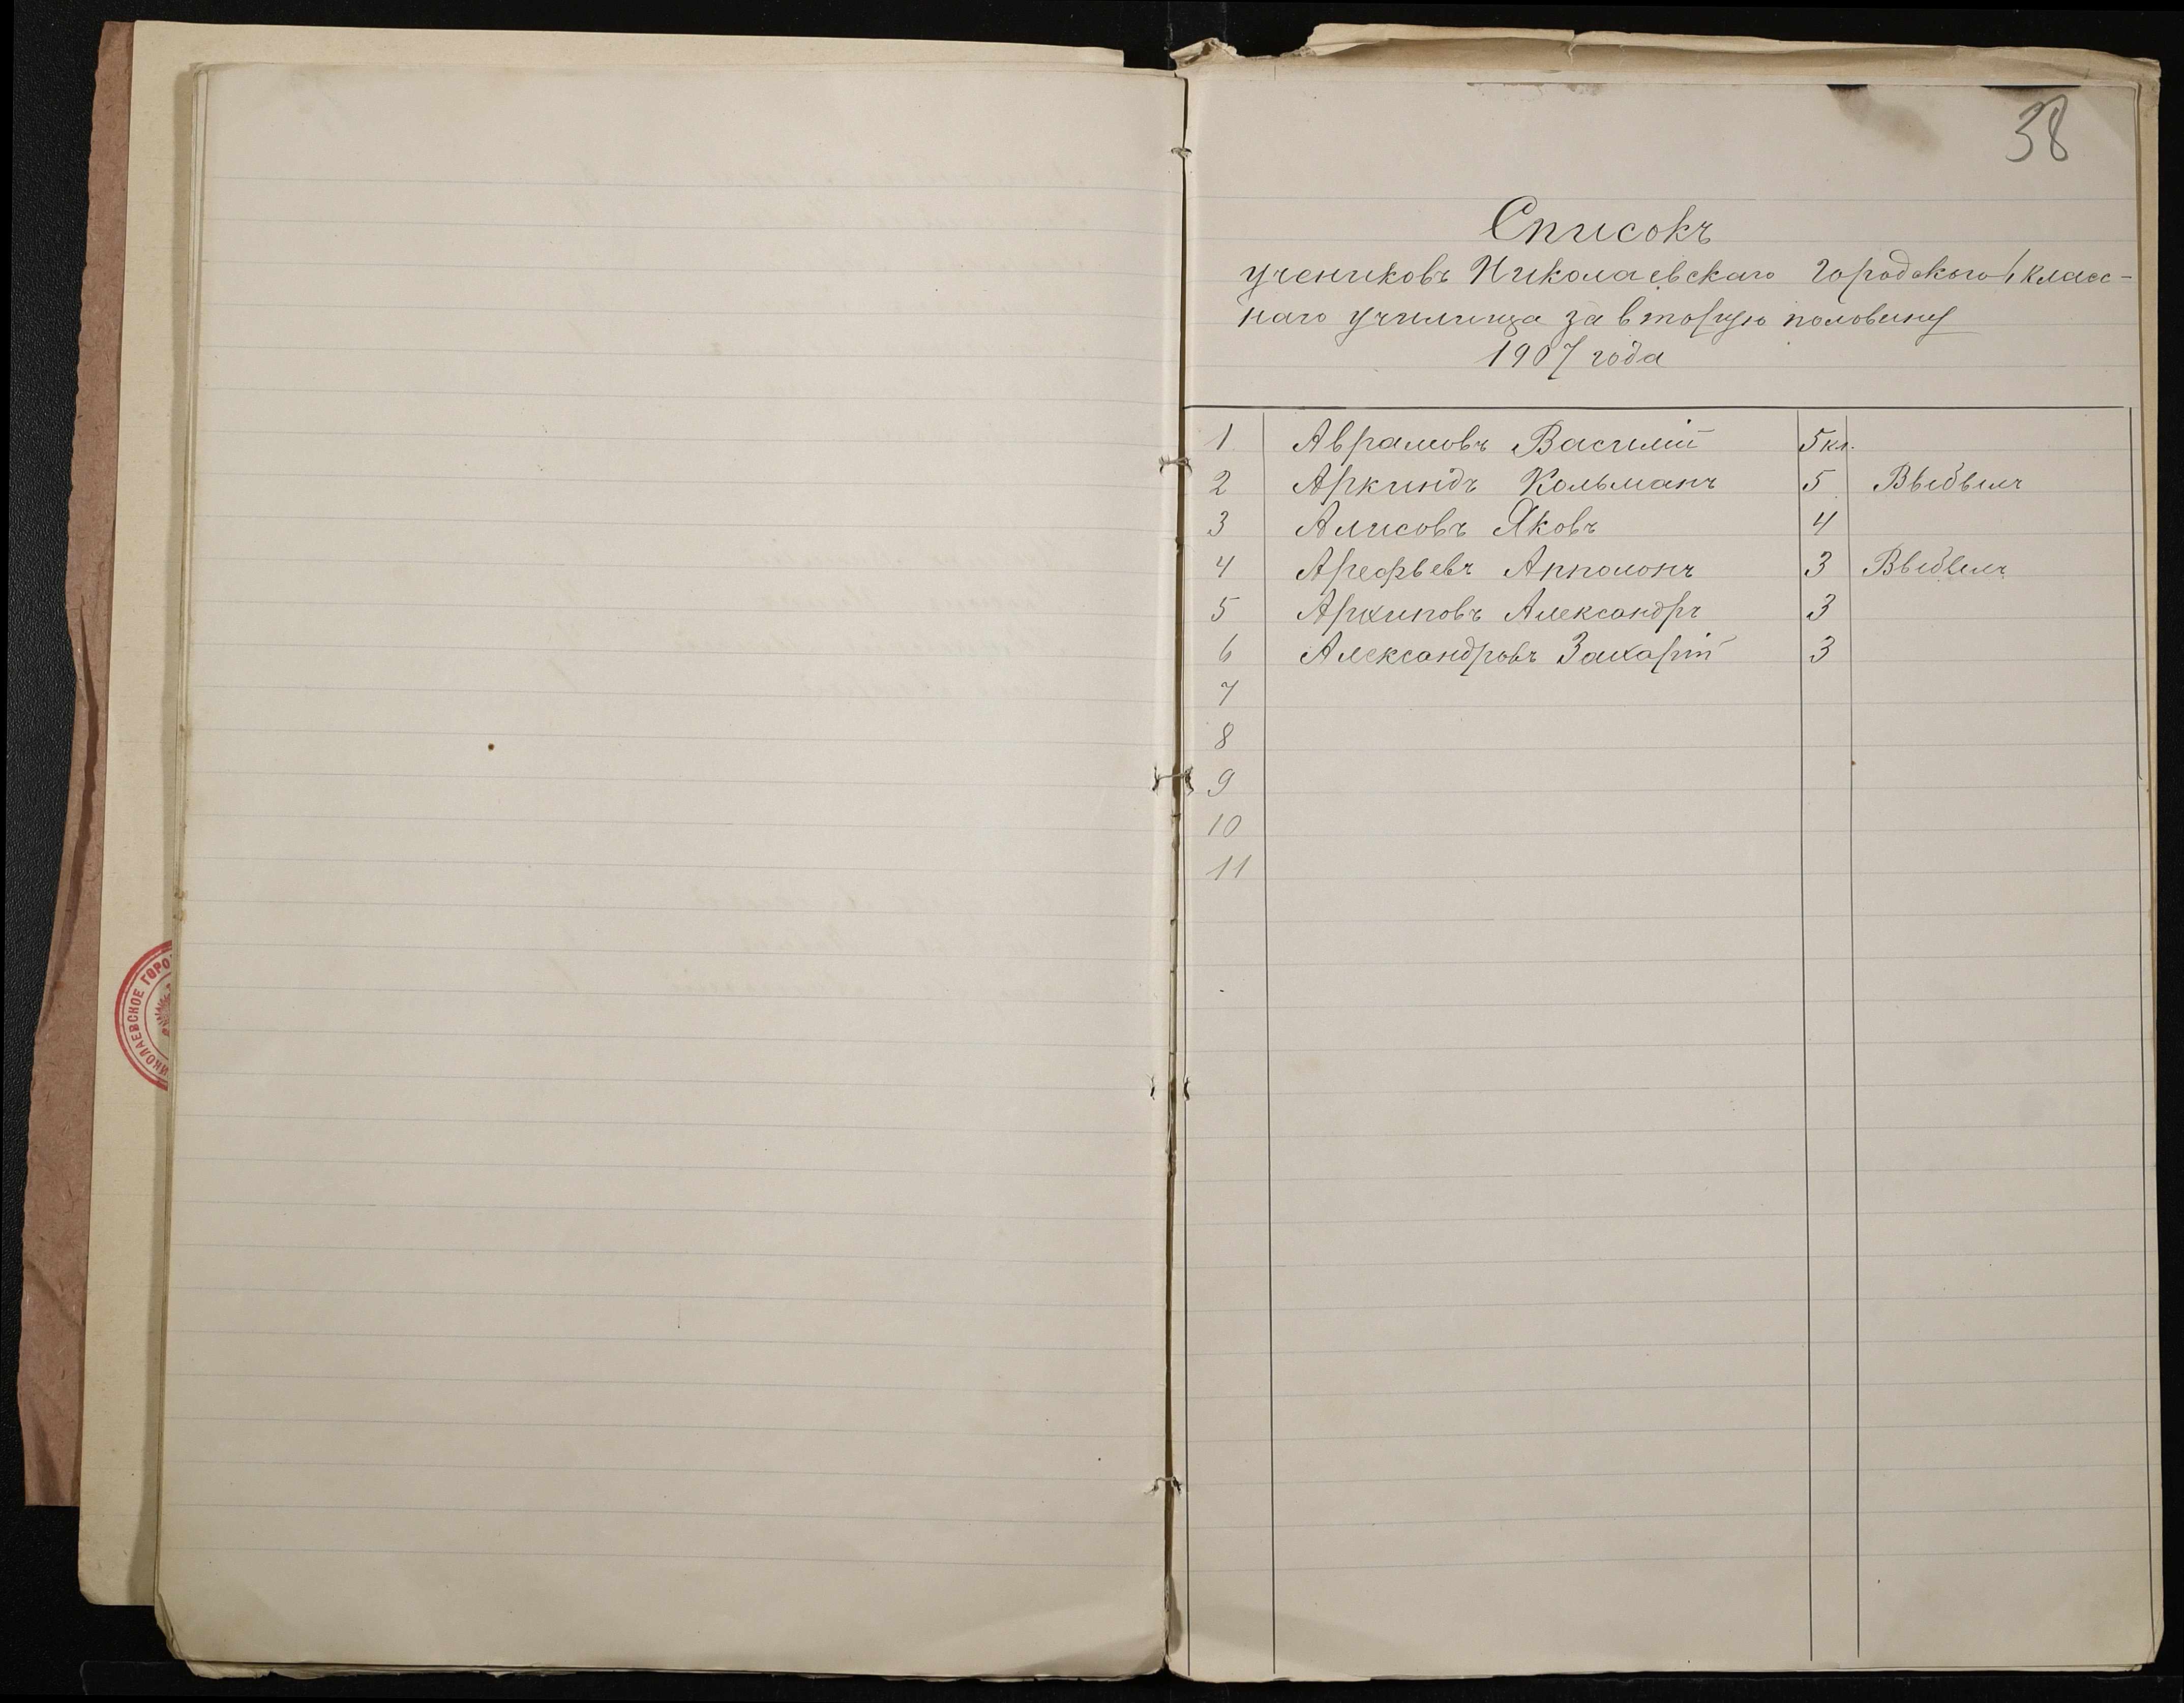 38
Списокъ
учениковъ Николаевскаго Городского 4 класс-
наго училища за вторую половину
1907 года
1 Аврамовъ Василій 5 кл.
2 Аркиндъ Кольманъ 5 Выбылъ
3 Алисовъ Яковъ 4
4 Арефьевъ Апполонъ 3 Выбылъ
5 Архиповъ Александръ 3
6 Александровъ Захарій 3
7
8
9
10
11
ИКОЛАЕВСКОЕ ГОРО